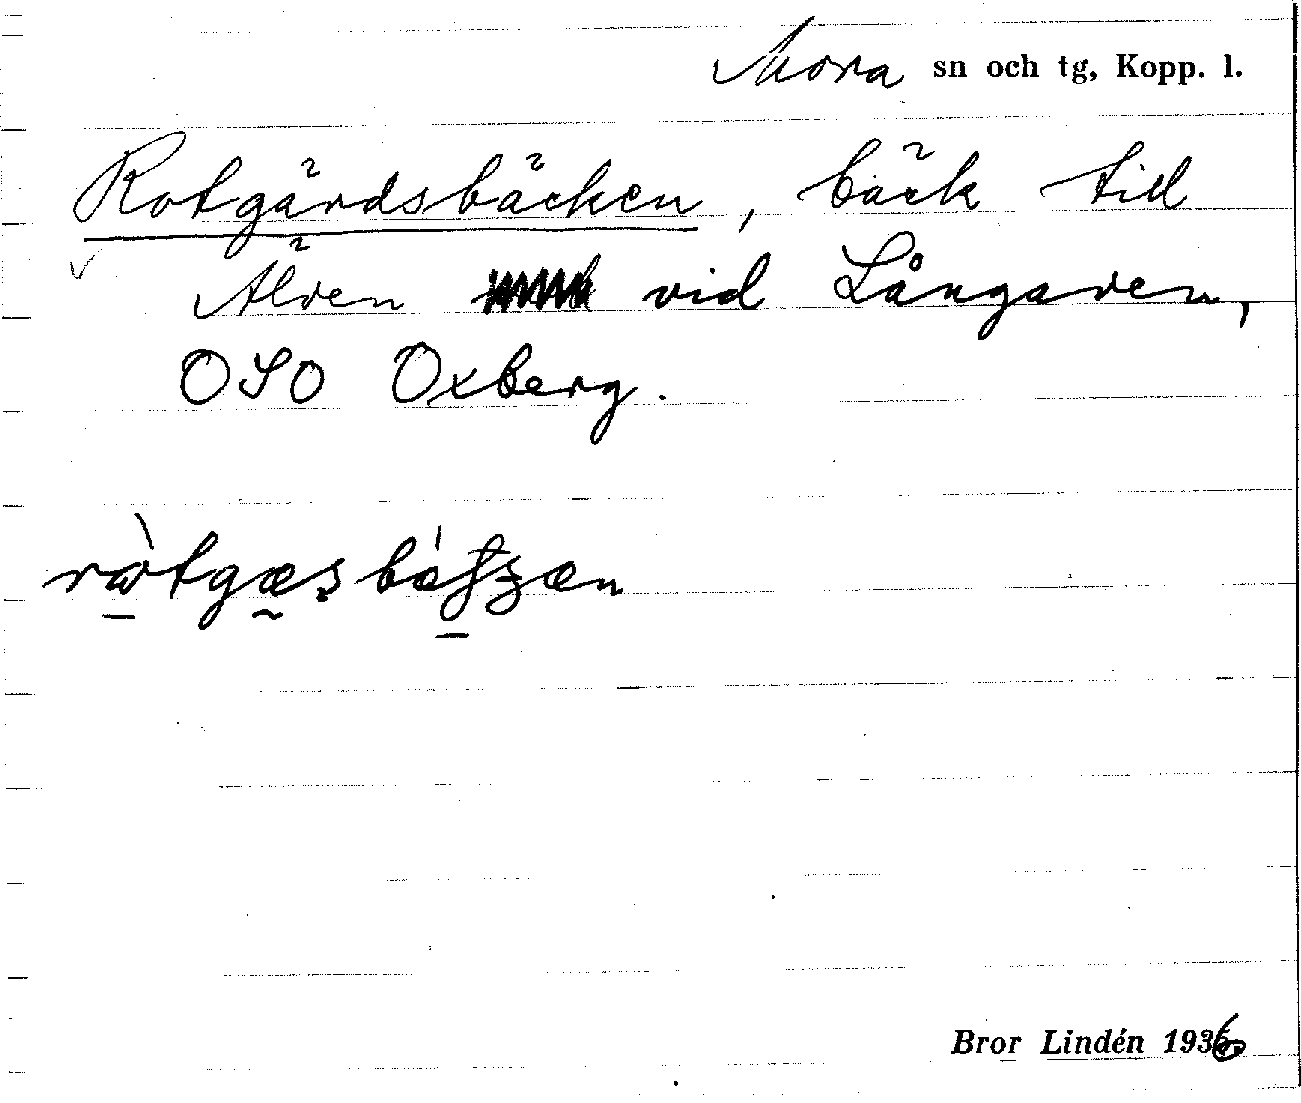 Mora sn och tg, Kopp. l.
Rotgärdsbäcken, bäck till
Älven vid Långaren,
OSO Oxberg.
Bror Lindén 1936